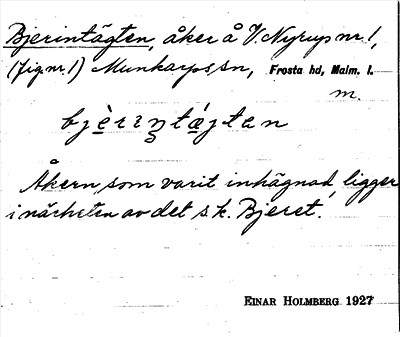 Bjerintägten, åker å V. Nyrup nr 1,
(fig. nr 1) Munkarps sn, Frosta hd, Malm. l.
m.
bjèrintágten
Åkern, som varit inhägnad, ligger
i närheten av det s.k. Bjeret.
EINAR HOLMBERG 1927